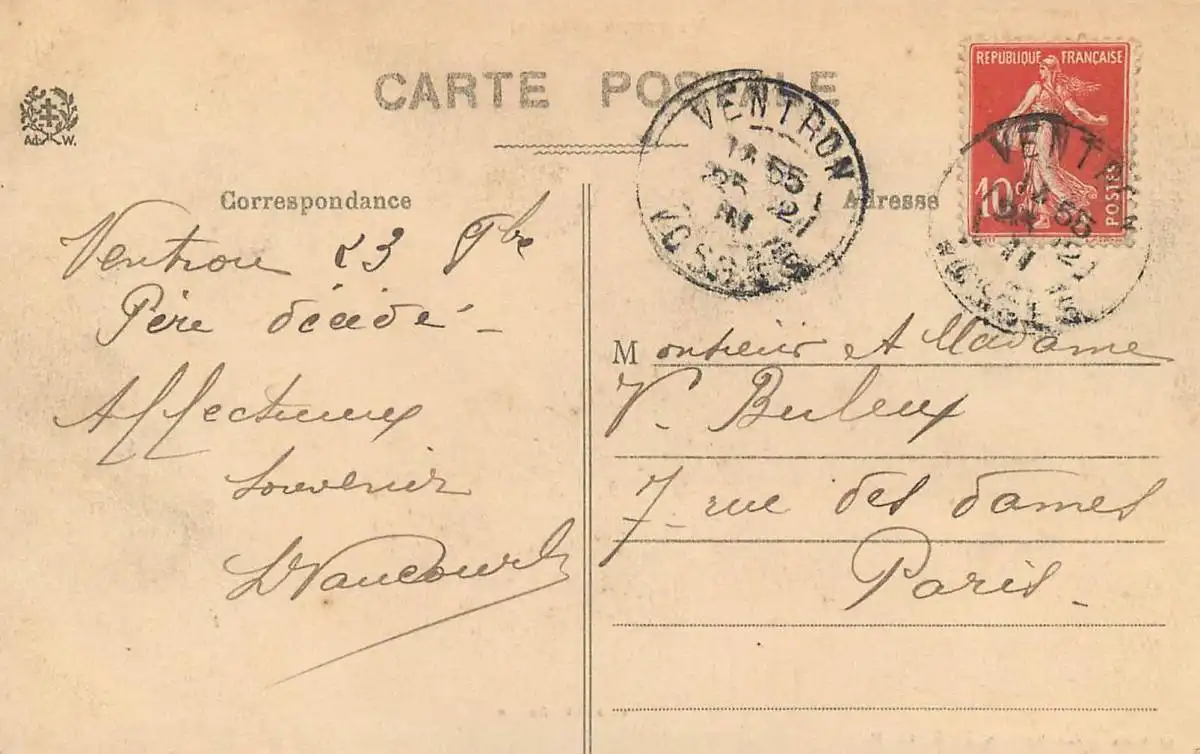 CARTE POSTALE
Ad. W.
REPUBLIQUE FRANÇAISE
10c
POSTES
VENTRON
14 55
VOSGES
VENTRON
14 55
VOSGES
Correspondance
Ventron 23 9bre
Père décédé -
Affectueux
souvenir
Adresse
Monsieur et Madame
V. Buleux
7 rue des dames
Paris -